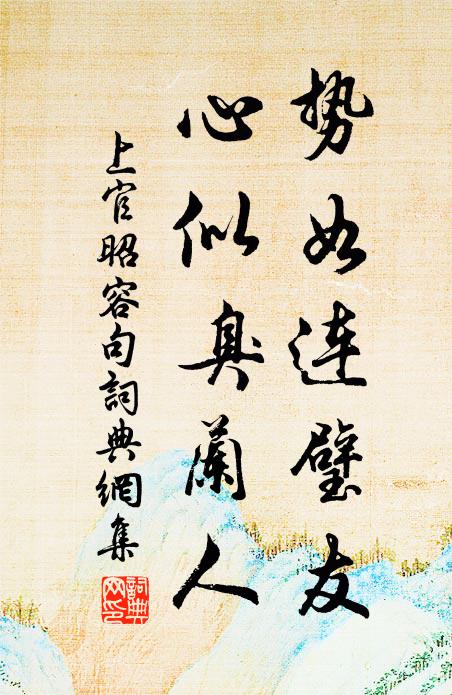 势如連璧友
心似臭蘭人
上官昭容句詞典網集
詞典
网印